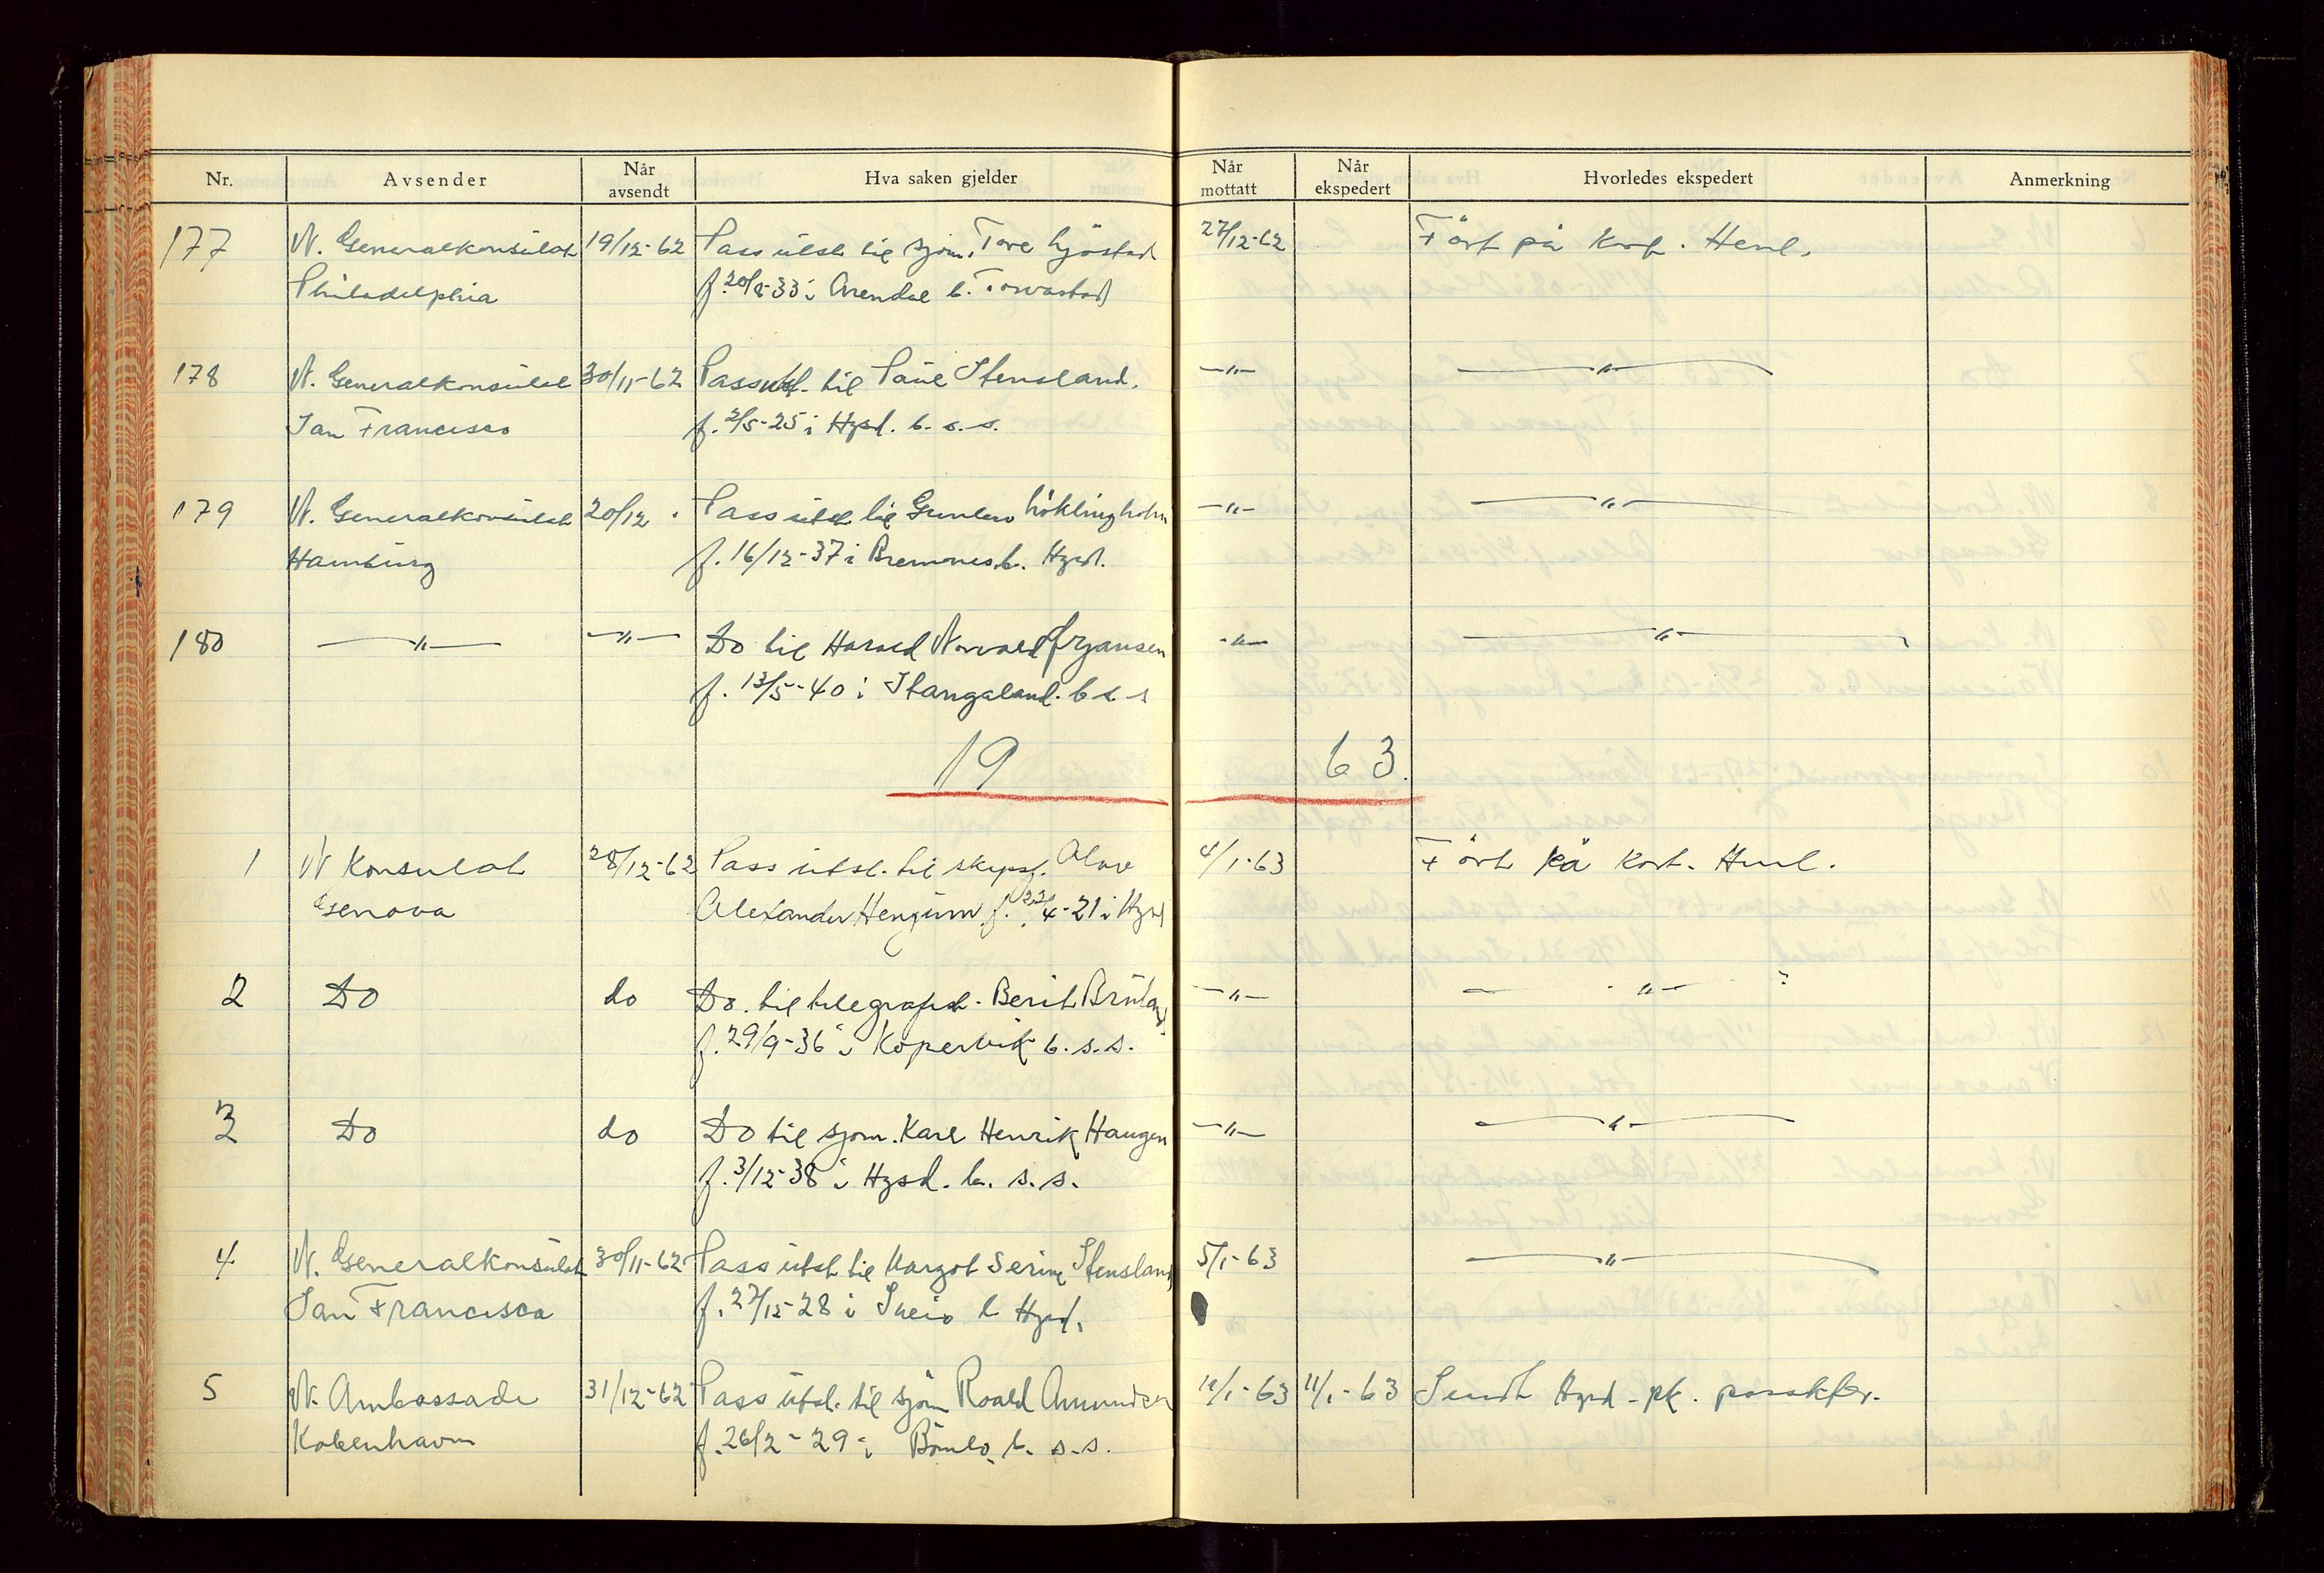 Nr. Avsender Når avsendt Hva saken gjelder Når mottatt Når ekspedert Hvorledes ekspedert Anmerkning
177 N. Generalkonsulat 19/12-62 Pass utst. til sjøm. Tore 27/12-62 Ført på kort. Henl.
Philadelphia f. 20/8-33 i Arendal b. Torvastad
178 N. Generalkonsulat 30/11-62 Pass utst. til Paul Stensland. —"— —"—
San Francisco f. 2/5-25 i Hgsd. b. s. s.
179 N. Generalkonsulat 20/12 . Pass utst til Höklingholm —"— —"—
Hamburg f. 16/12-37 i Bremnes b. Hgsd.
180 —"— —"— Do til Harald Norvald Ørjansen —"— —"—
f. 13/5-40 i Stangaland. b s s
19 63.
1 N Konsulat 28/12-62 Pass utst. til skipsf. Olav 4/1-63 Ført på kort. Henl.
Genova Alexander f. 22/4-21 i Hgsd
2 Do do Do. til telegrafist. Berit —"— —"—
f. 29/9-36 i Kopervik b. s.s.
3 Do do Do til sjøm. Karl Henrik Haugen —"— —"—
f. 3/12-38 i Hgsd. b. s. s.
4 N. Generalkonsulat 30/11-62 Pass utst til Margot Serine Stensland 5/1-63 —"—
San Francisco f. 27/12-28 i Sveio b Hgsd.
5 N. Ambassade 31/12-62 Pass utst. til sjøm Roald Amundsen 11/1-63 11/1-63 Sendt Hgsd. pk. passkfr.
København f. 26/2-29 i Bømlo b. s.s.